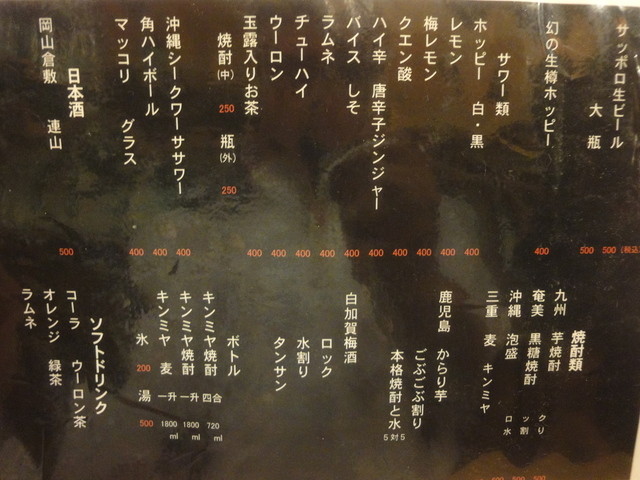 サッポロ生ビール
500 (税込
大瓶
500
幻の生樽ホッピー
400
サワー類
ホッピー 白・黒
400
レモン
400
梅レモン
400
クエン酸
400
ハイ辛 唐辛子ジンジャー
400
バイス しそ
400
ラムネ
400
チューハイ
400
ウーロン
400
玉露入りお茶
400
焼酎(中) 250 瓶(外) 250
沖縄シークワーササワー
400
角ハイボール
400
マッコリ グラス
400
日本酒
岡山倉敷 連山
500
焼酎類
九州 芋焼酎
奄美 黒糖焼酎
沖縄 泡盛
三重 麦 キンミヤ
ロック
水割り
500
500
400
鹿児島 からり芋
ごぶごぶ割り
本格焼酎と水
5対5
白加賀梅酒
ロック
水割り
タンサン
ボトル
キンミヤ焼酎 四合 720ml
キンミヤ焼酎 一升 1800ml
キンミヤ 麦 一升 1800ml
氷 200 湯 500
ソフトドリンク
コーラ ウーロン茶
オレンジ 緑茶
ラムネ